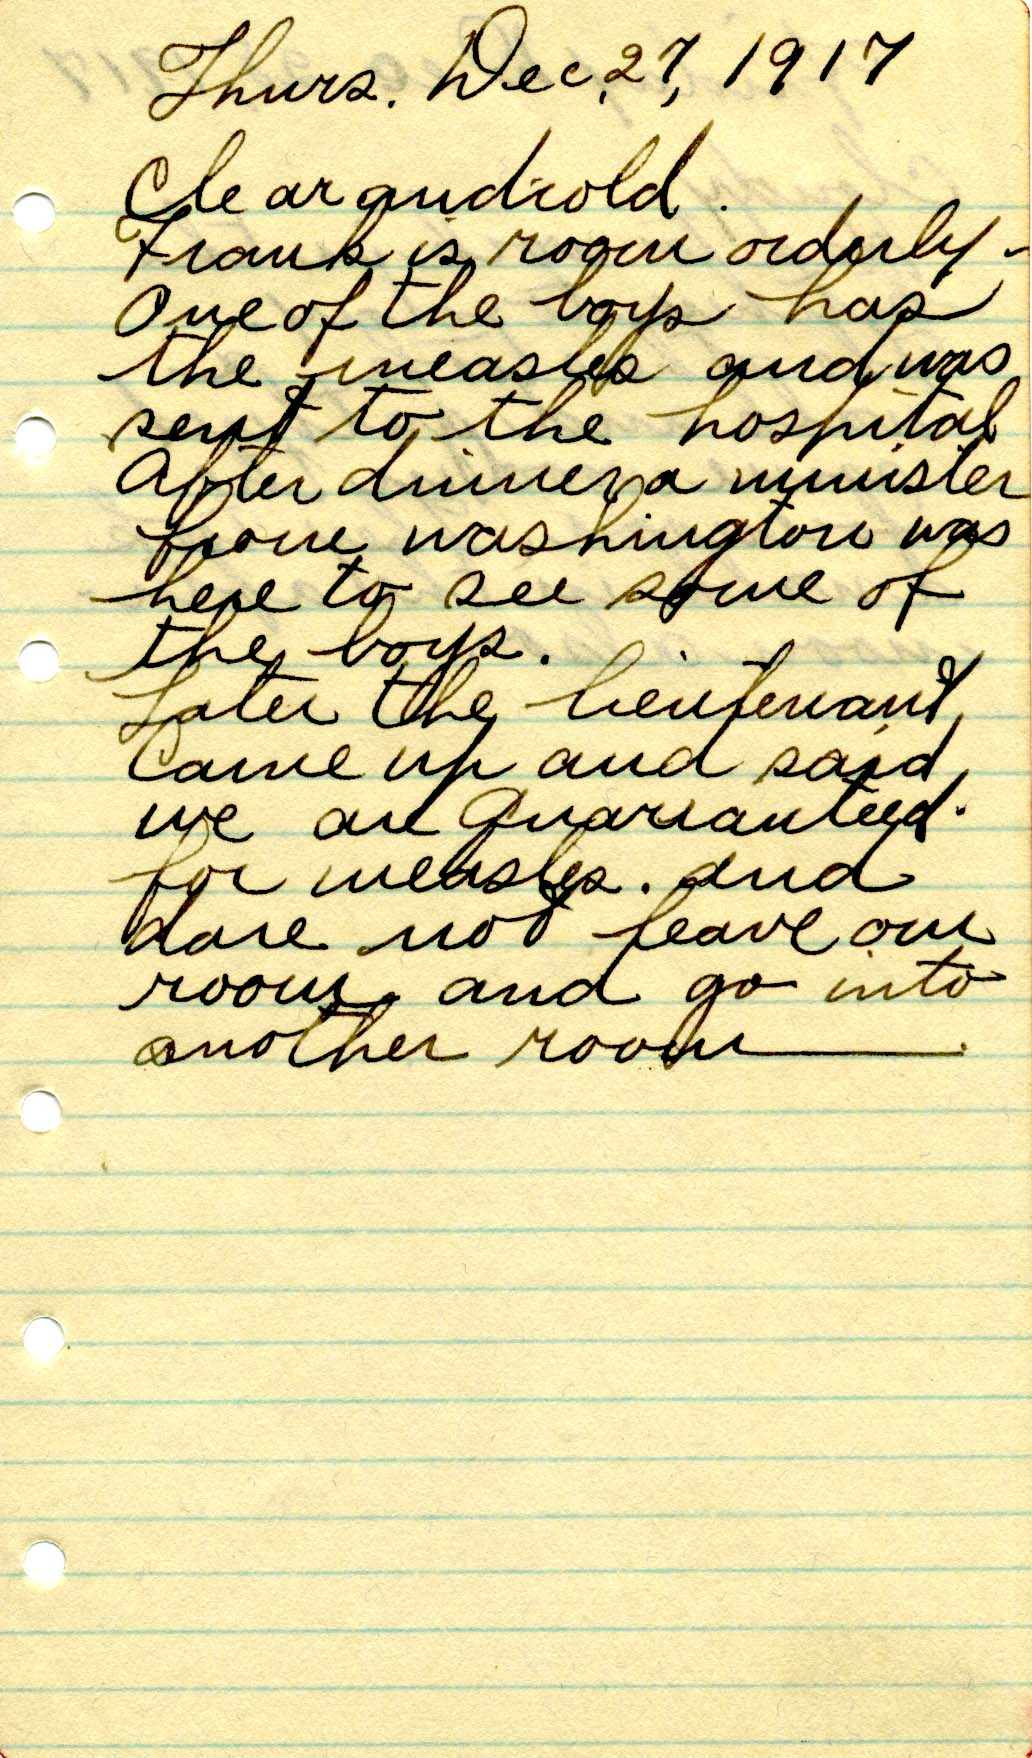 Thurs. Dec. 27, 1917
Clear and cold.
Frank is room orderly -
One of the boys has
the measles and was
sent to the hospital
After dinner a minister
from washington was
here to see some of
the boys.
Later the lieutenant
Came up and said
we are Quarranteed.
for measles. and
dare not leave our
room, and go into
another room